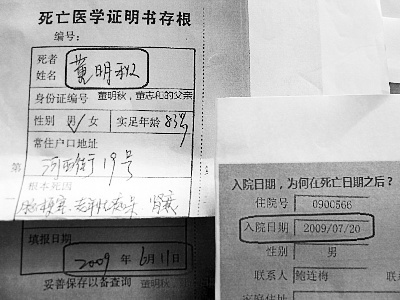 死亡医学证明书存根
编号:
死者
姓名 董明秋
身份证编号 董明秋，董志和的父亲
性别 男/女 实足年龄 83岁
常住户口地址
第
河西街19号
根本死因
填报日期
2009年6月11日
妥善保存以备查询 董明
入院日期，为何在死亡日期之后？
住院号 0900566
入院日期 2009/07/20
性别 男
联系人 鲍连梅
家庭地址